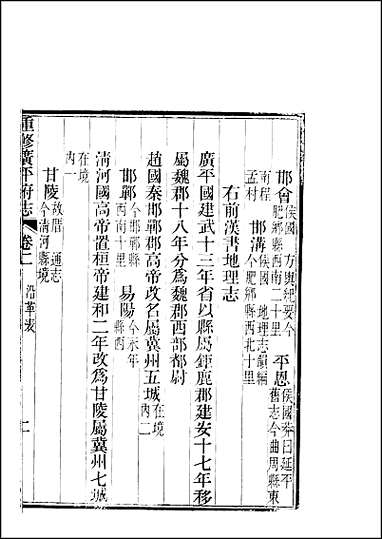 邯會侯國 方輿紀要今肥鄉縣西南二十里 平恩侯國莽曰延平舊志今曲周縣東
南程孟村 邯溝侯國 地理志韻編今肥鄉縣西北十里
右前漢書地理志
廣平國建武十三年省以縣屬鉅鹿郡建安十七年移
屬魏郡十八年分爲魏郡西部都尉
趙國秦邯鄲郡高帝改名屬冀州五城在境內二
邯鄲今邯鄲縣西南十里 易陽今永年縣西
清河國高帝置桓帝建和二年改爲甘陵屬冀州七城
在境內一
甘陵故厝 通志今清河縣境
重修廣平府志 卷二 沿革表 二